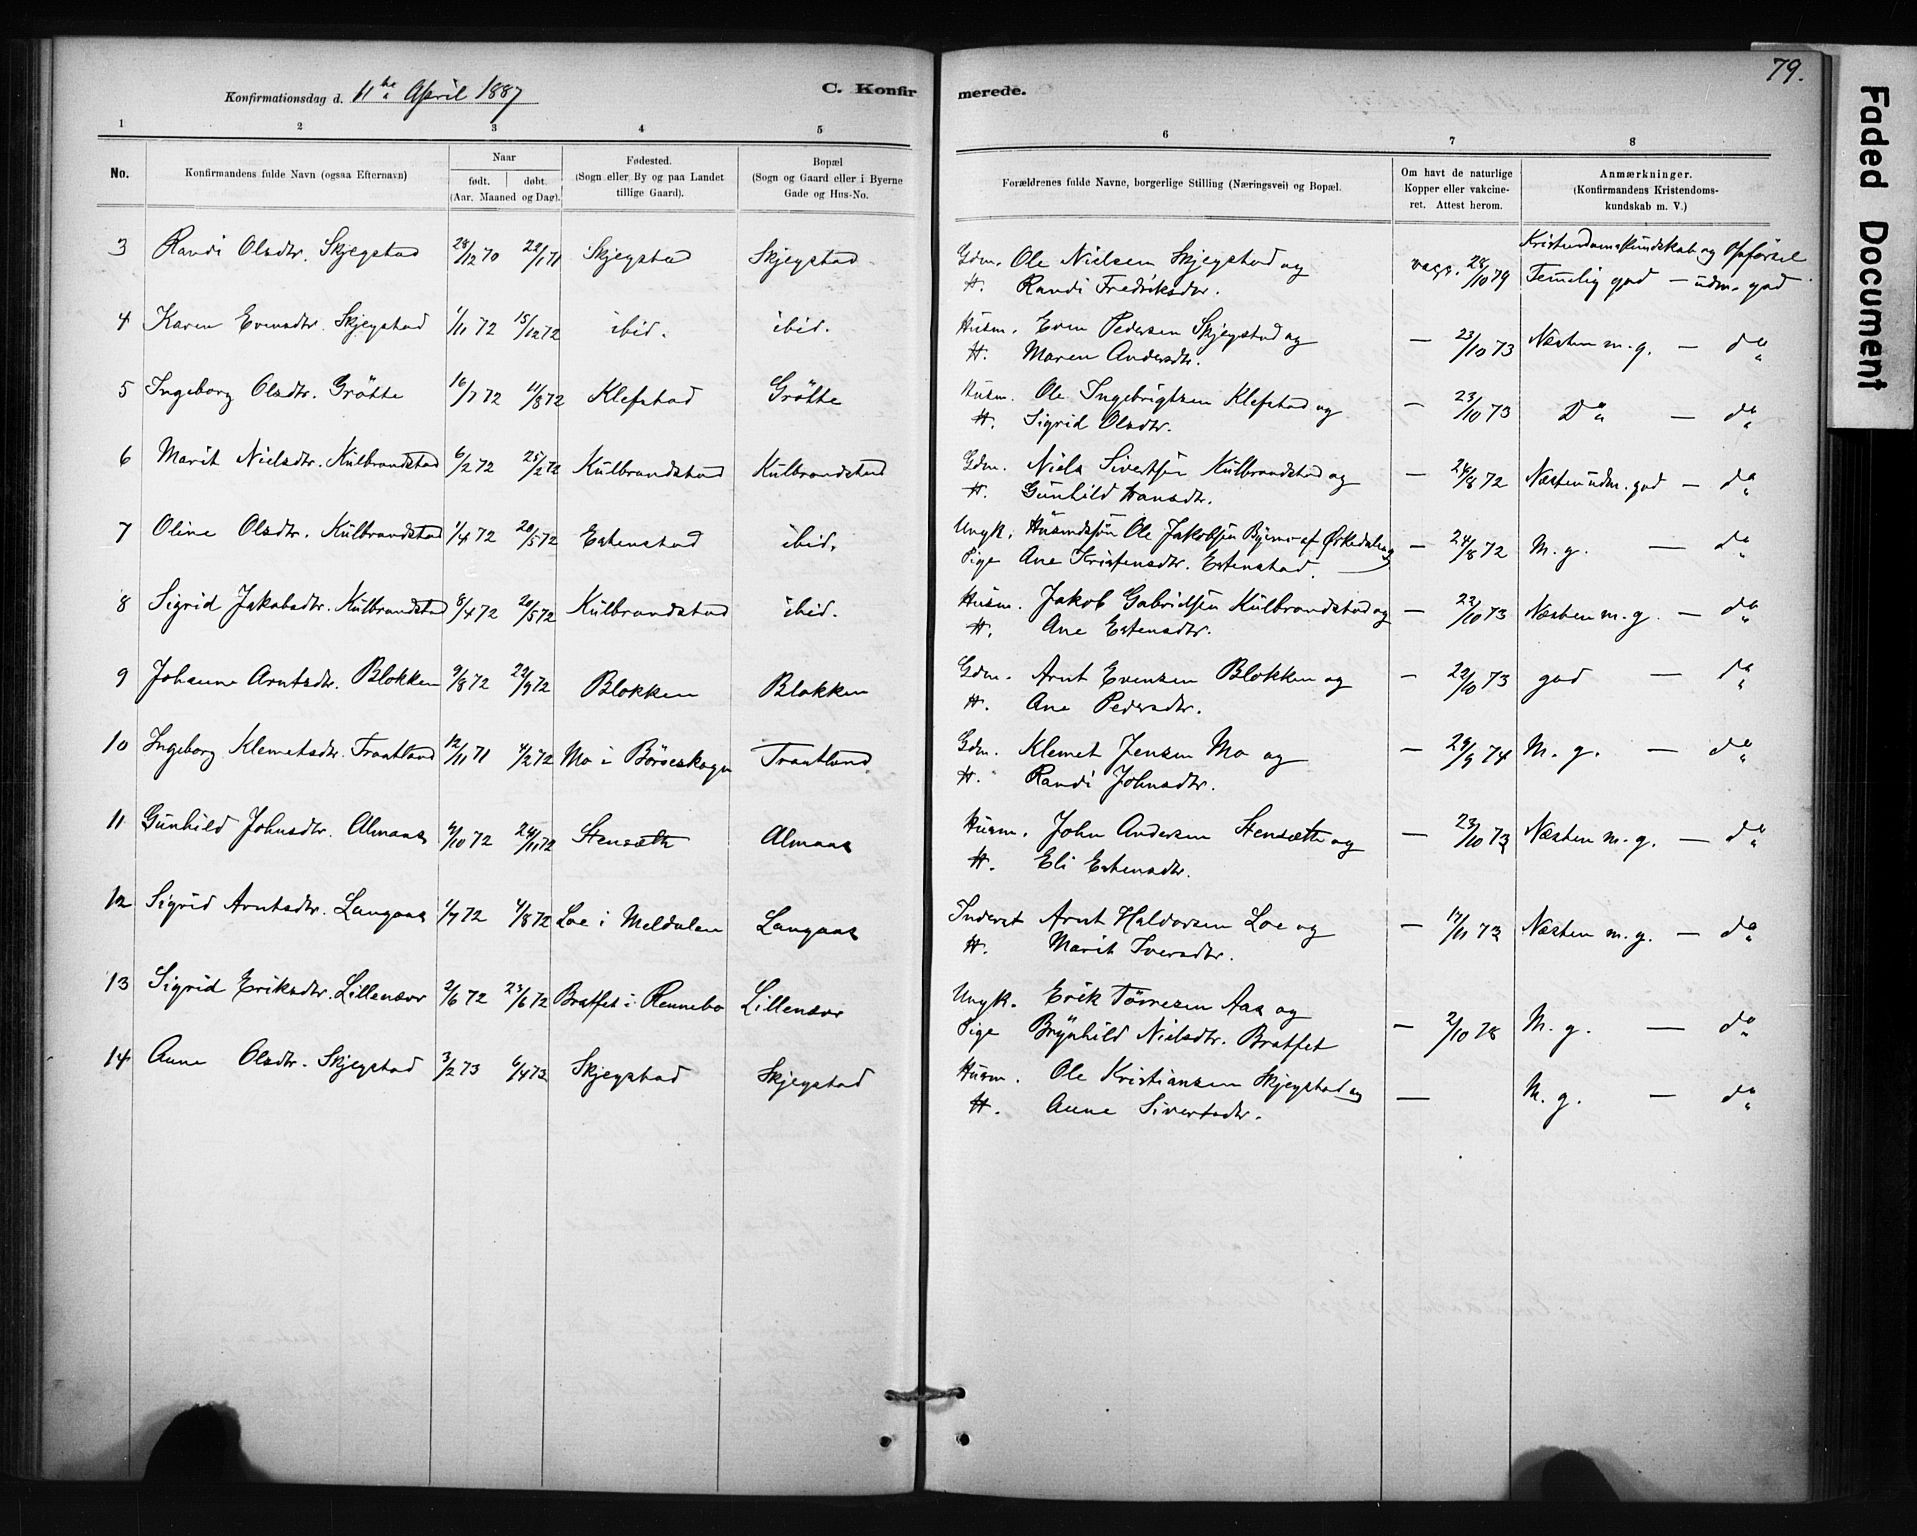 79.
Faded Document
Konfirmationsdag d. 11te April 1887
C. Konfirmerede.
1 2 3 4 5 6 7 8
No.
Konfirmandens fulde Navn (ogsaa Efternavn)
Naar
født. døbt.
(Aar, Maaned og Dag).
Fødested.
(Sogn eller By og paa Landet
tillige Gaard).
Bopæl
(Sogn og Gaard eller i Byerne
Gade og Hus-No.
Forældrenes fulde Navne, borgerlige Stilling (Næringsvei) og Bopæl.
Om havt de naturlige
Kopper eller vakcine-
ret. Attest herom.
Anmærkninger.
(Konfirmandens Kristendoms-
kundskab m. V.)
Kristendomskundskab og Opførsel
3 Randi Olsdtr. Skjegstad 28/12 70 22/1 71 Skjegstad Skjegstad Gdm. Ole Nielsen Skjegstad og vacc. 28/10 79 Temelig god — udm. god
H. Randi Fredriksdtr.
4 Karen Evensdtr. Skjegstad 1/11 72 15/12 72 ibid. ibid. Husm. Even Pedersen Skjegstad og — 23/10 73 Næsten m. g. — do
H. Maren Andersdtr.
5 Ingeborg Olsdtr. Grötte 16/7 72 11/8 72 Klefstad Grötte Husm. Ole Ingebrigtsen Klefstad og — 23/10 73 Do — do
H. Sigrid Olsdtr.
6 Marit Nielsdtr. Kulbrandstad 6/2 72 25/2 72 Kulbrandstad Kulbrandstad Gdm. Niels Sivertsen Kulbrandstad og — 24/8 72 Næsten udm. god — do
H. Gunhild Hansdtr.
7 Oline Olsdtr. Kulbrandstad 1/4 72 20/5 72 Estenstad ibid. Ungk. Husmdsøn Ole Jakobsen Byemo af Ørkedalen og — 24/8 72 M. g. — do
Pige Ane Kristensdtr. Estenstad.
8 Sigrid Jakobsdtr. Kulbrandstad 8/4 72 20/5 72 Kulbrandstad ibid. Husm. Jakob Gabrielsen Kulbrandstad og — 22/10 73 Næsten m. g. — do
H. Ane Estensdtr.
9 Johanne Arntsdtr. Blokken 9/8 72 22/9 72 Blokken Blokken Gdm. Arnt Evensen Blokken og — 22/10 73 god — do
H. Ane Pedersdtr.
10 Ingeborg Klemetsdtr. Traatlund 12/11 71 4/2 72 Mo i Börseskogn Traatlund. Gdm. Klemet Jensen Mo og — 29/9 74 M. g. — do
H. Randi Johnsdtr.
11 Gunhild Johnsdtr. Almaas 6/10 72 24/11 72 Stensæth Almaas Husm. John Andersen Stensæth og — 23/10 73 Næsten m. g. — do
H. Eli Estensdtr.
12 Sigrid Arntsdtr. Langaas 1/7 72 4/8 72 Loe i Meldalen Langaas Inderst Arnt Haldorsen Loe og — 17/11 73 Næsten m. g. — do
H. Marit Iversdtr.
13 Sigrid Eriksdtr. Lillenævr 2/6 72 23/6 72 Bratset i Rennebo Lillenævr Ungk. Erik Tørresen Aas og
Pige Brynhild Nielsdtr. Bratset — 2/10 78 M. g. — do
14 Anne Olsdtr. Skjegstad 3/2 73 6/4 73 Skjegstad Skjegstad Husm. Ole Kristiansen Skjegstad og — M. g. — do
H. Anne Sivertsdtr.